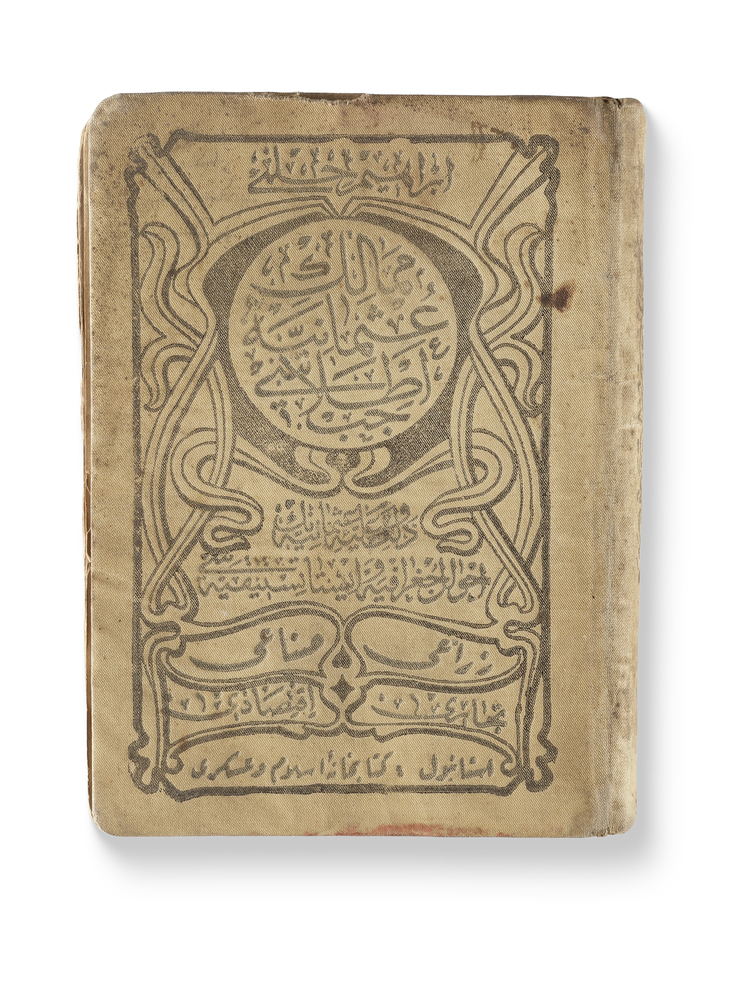 ابراهيم حلمي
ممالك
عثمانيّه
جيب آطلاسي
دولت عليۀ عثمانيه‌نك
احوال جغرافيه و استاتستيقيه‌سى
زراعى صناعى
تجارى اقتصادى
استانبول : كتابخانۀ اسلام و عسكرى